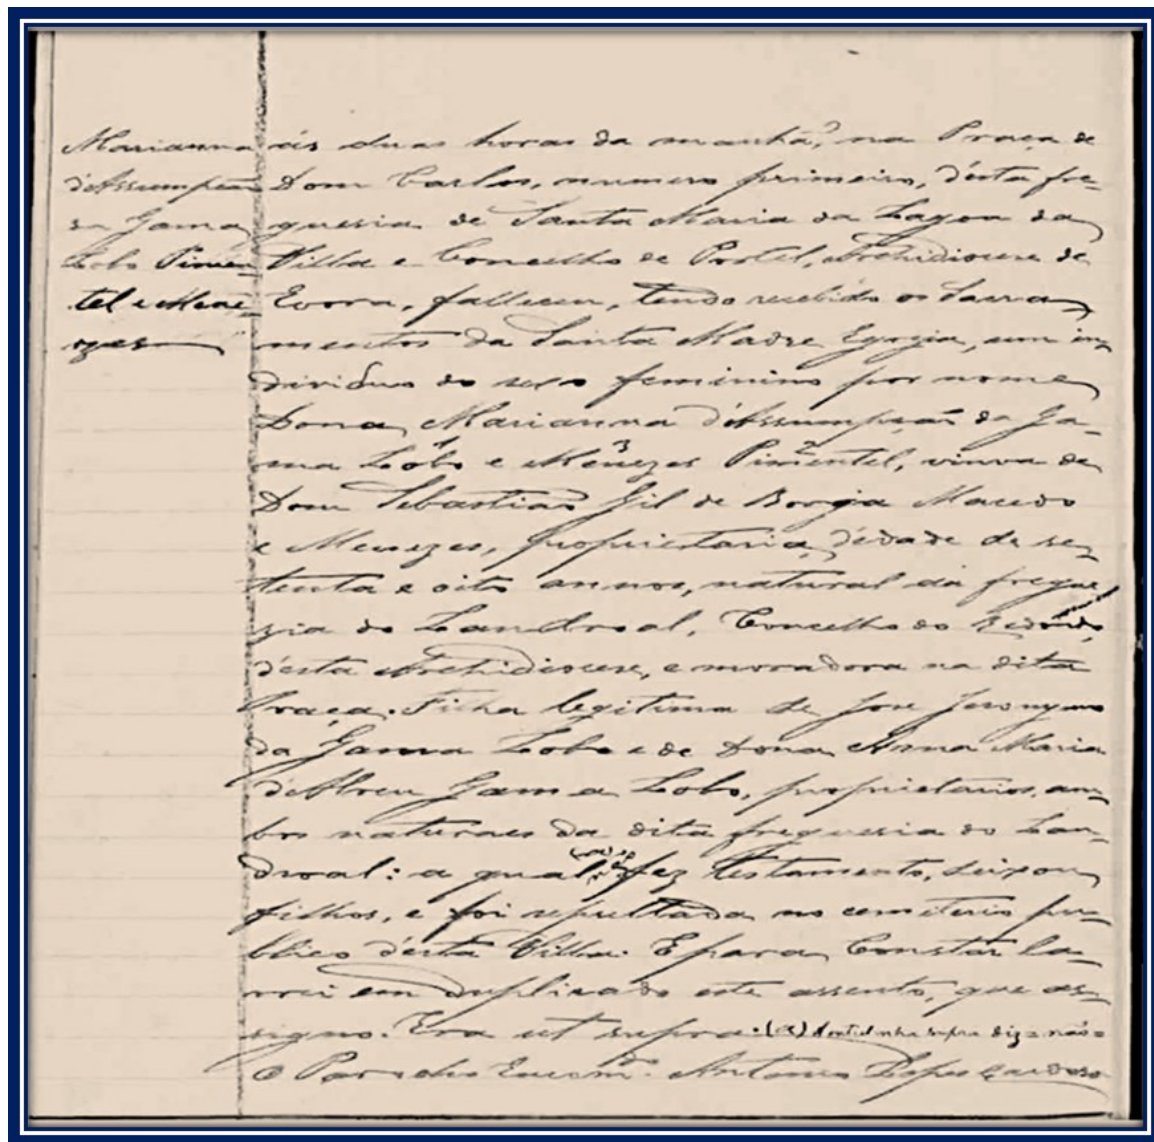 Marianna
d'Assumpção
da Gama
Lobo Pimen=
tel e Mene=
zes
ás duas horas da manhã, na Praça de
Dom Carlos, numero primeiro, d'esta fre-
guesia de Santa Maria da Lagoa da
Villa e Concelho de Portel, Archidiocese de
Evora, falleceu, tendo recebido os Sacra-
mentos da Santa Madre Egrja, um in-
dividuo do sexo feminino por nome
Dona Marianna d'Assumpção da Ga-
ma Lobo 1 e Menezes 3 Pimentel 2, viuva de
Dom Sebastião Gil de Borja Macedo
e Menezes, proprietaria, d'edade de se-
tenta e oito annos, natural da fregue
sia do Landroal, Concelho do Redondo,
d'esta Archidiocese, e moradora na dita
Praça. Filha legitima de José Jeronymo
da Gama Lobo e de Dona Anna Maria
d'Abreu Gama Lobo, proprietarios, am-
bos naturaes da dita freguesia do Lan-
droal: a qual (a) fez testamento, deixou
filhos, e foi sepultada no cemiterio pu-
blico d'esta Villa. E para constar la-
vrei em duplicado este assento, que as-
signo. Era ut supra. (a) A entrelinha supra diz = não =
O Parocho Encom.do Antonio Lopes Cardoso